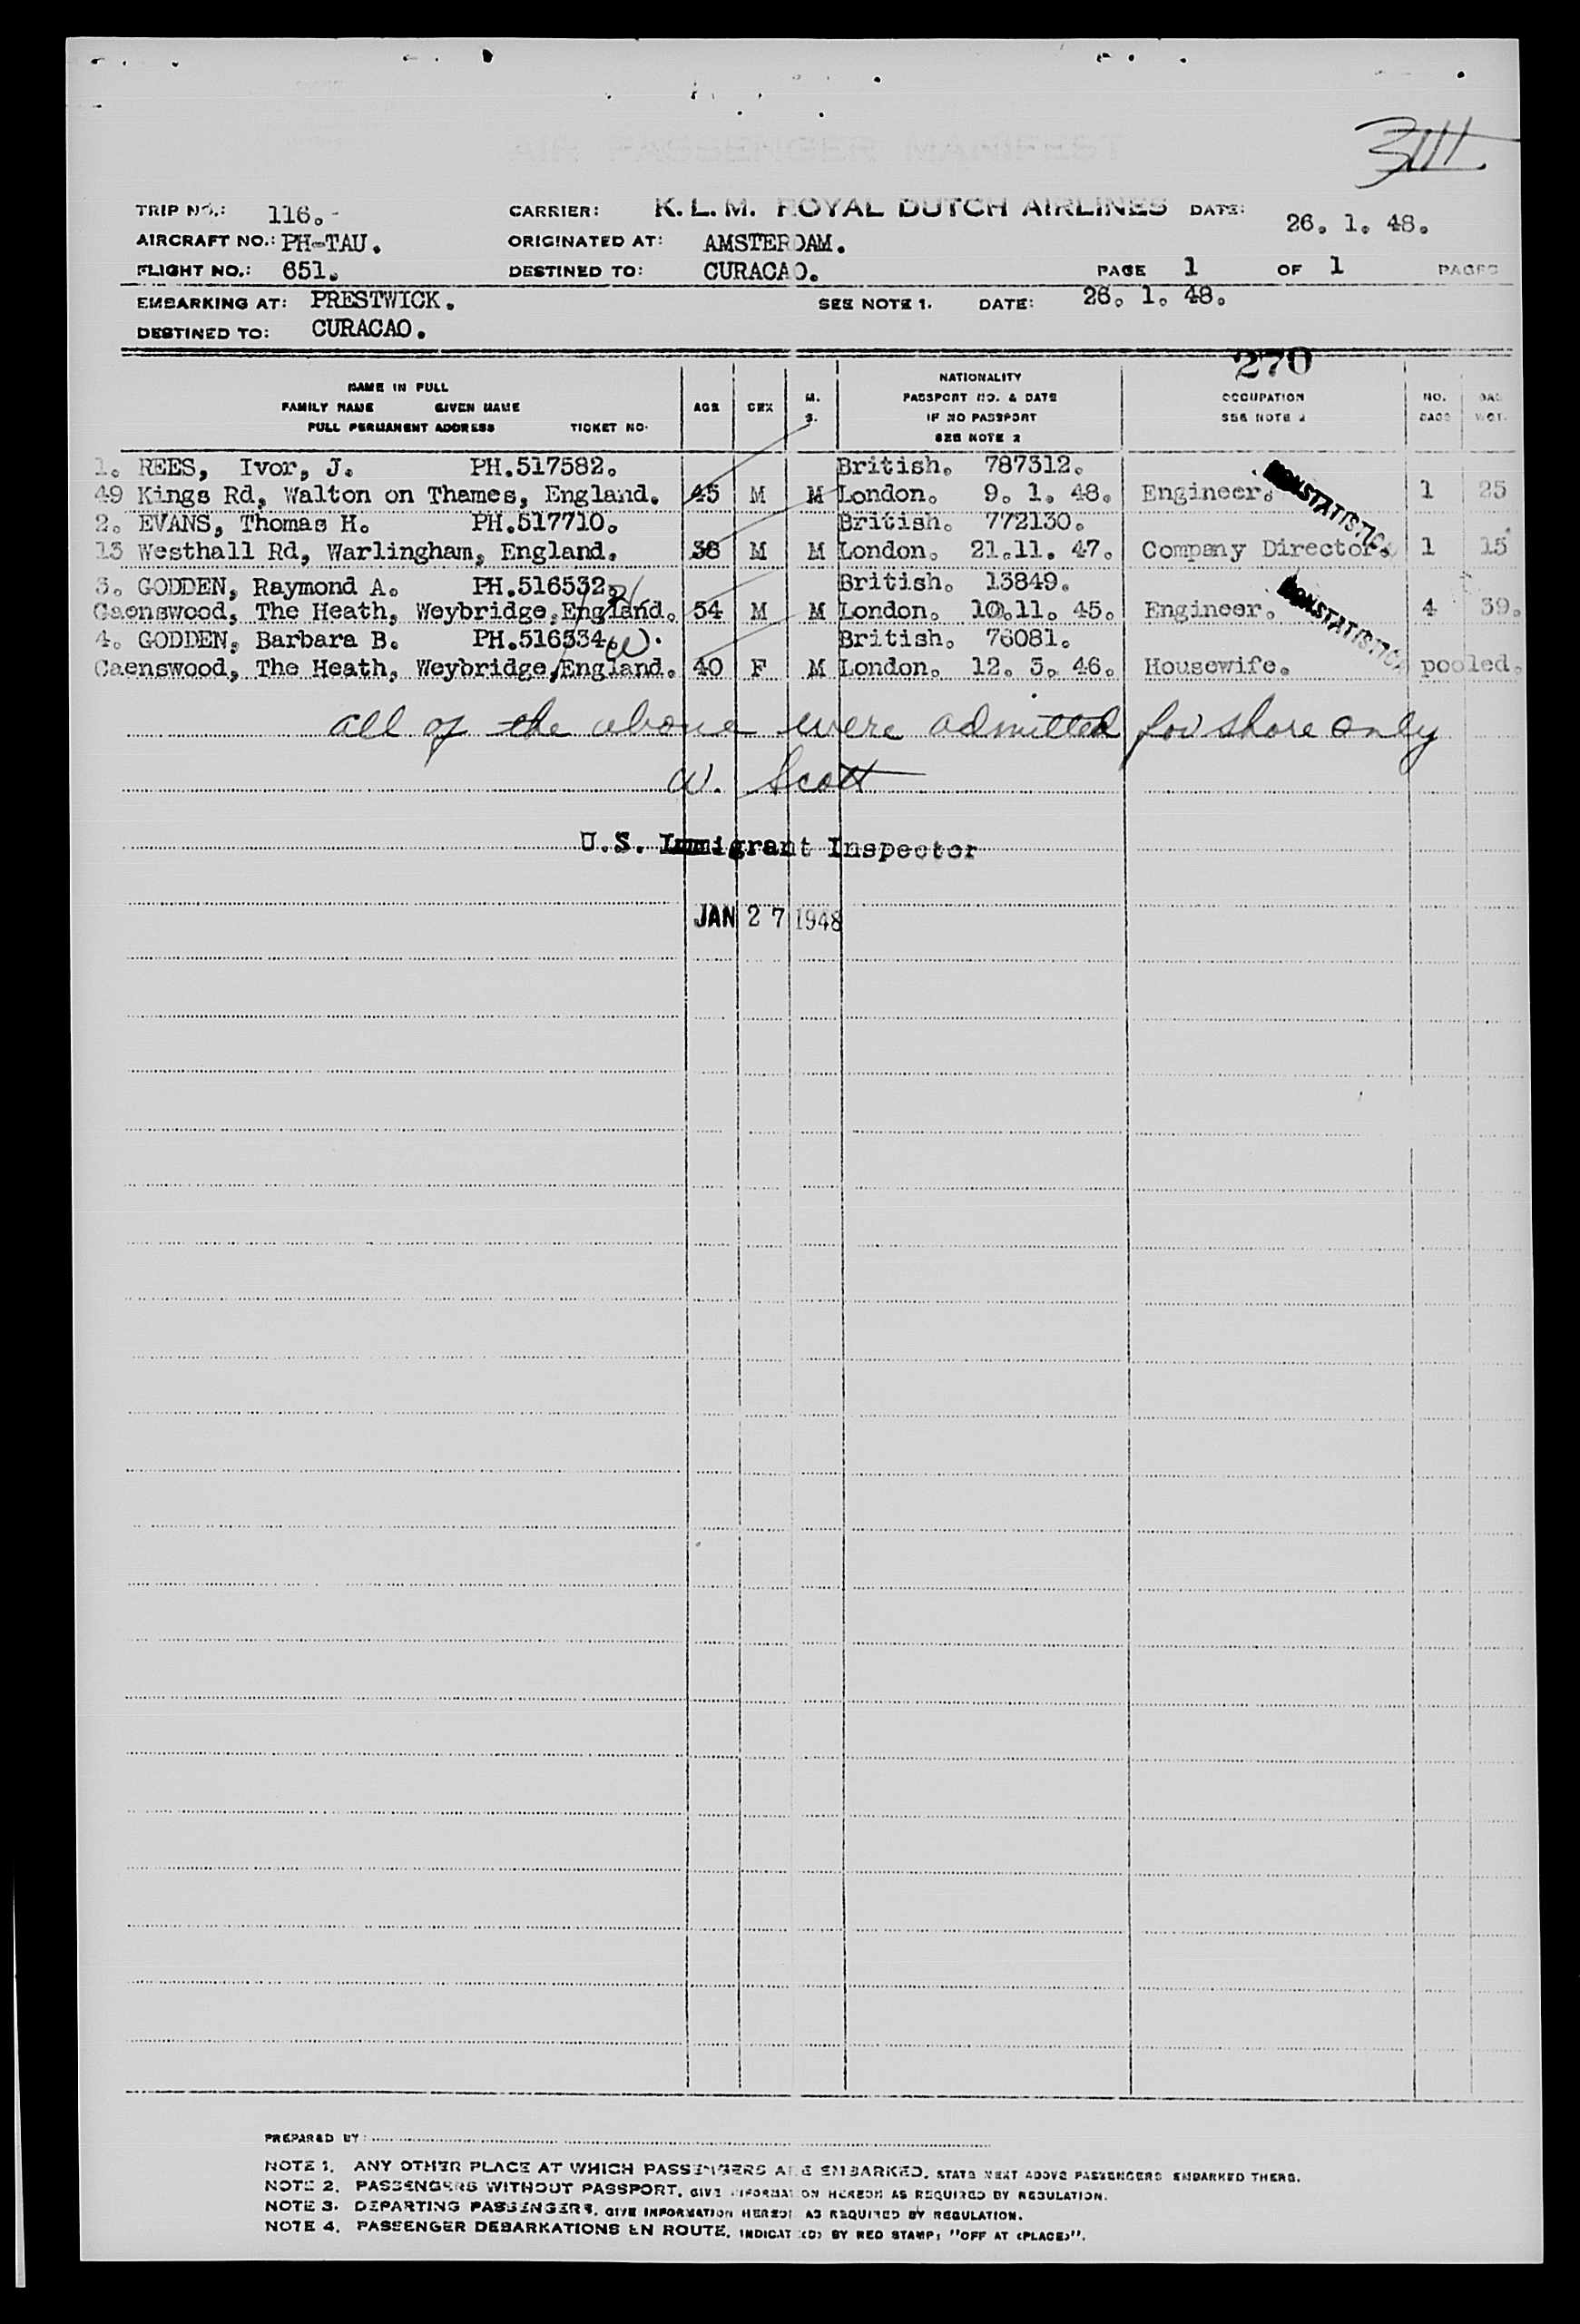 AIR PASSENGER MANIFEST
TRIP NO.: 116.- CARRIER: K.L.M. ROYAL DUTCH AIRLINES DATE: 26. 1. 48.
AIRCRAFT NO.: PH-TAU. ORIGINATED AT: AMSTERDAM.
FLIGHT NO.: 651. DESTINED TO: CURACAO. PAGE 1 OF 1 PAGES
EMBARKING AT: PRESTWICK. SEE NOTE 1. DATE: 26. 1. 48.
DESTINED TO: CURACAO.
270
NAME IN FULL
FAMILY NAME GIVEN NAME
FULL PERMANENT ADDRESS TICKET NO.
AGE SEX M. S.
NATIONALITY
PASSPORT NO. & DATE
IF NO PASSPORT
SEE NOTE 2
OCCUPATION
SEE NOTE 2
NO. BAGS
BAG. WGT.
1. REES, Ivor, J. PH.517582. British. 787312.
49 Kings Rd, Walton on Thames, England. 45 M M London. 9. 1. 48. Engineer. 1 25
NONSTATISTICAL
2. EVANS, Thomas H. PH.517710. British. 772130.
13 Westhall Rd, Warlingham, England. 38 M M London. 21.11. 47. Company Director. 1 15
3. GODDEN, Raymond A. PH.516532. British. 13849.
Caenswood, The Heath, Weybridge, England. 54 M M London. 10.11. 45. Engineer. 4 39.
NONSTATISTICAL
4. GODDEN, Barbara B. PH.516534. W. British. 76081.
Caenswood, The Heath, Weybridge, England. 40 F M London. 12. 3. 46. Housewife. pooled.
all of the above were admitted for shore only
W. Scott
U.S. Immigrant Inspector
JAN 27 1948
PREPARED BY:
NOTE 1. ANY OTHER PLACE AT WHICH PASSENGERS ARE EMBARKED, STATE NEXT ABOVE PASSENGERS EMBARKED THERE.
NOTE 2. PASSENGERS WITHOUT PASSPORT, GIVE INFORMATION HEREON AS REQUIRED BY REGULATION.
NOTE 3. DEPARTING PASSENGERS, GIVE INFORMATION HEREON AS REQUIRED BY REGULATION.
NOTE 4. PASSENGER DEBARKATIONS EN ROUTE, INDICATE(D) BY RED STAMP: "OFF AT (PLACE)".